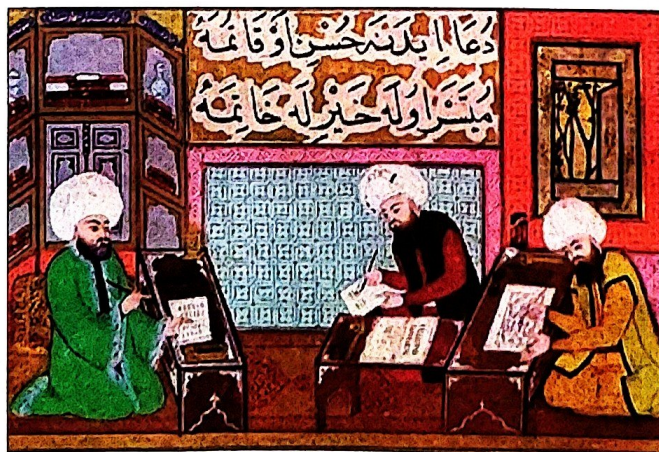 دُعَا اِيدَنَه حُسْنِ اوْقَاتِمَهُ
مُيَسَّرْ اوُلَه خَيْرِلَه خَاتِمَهُ